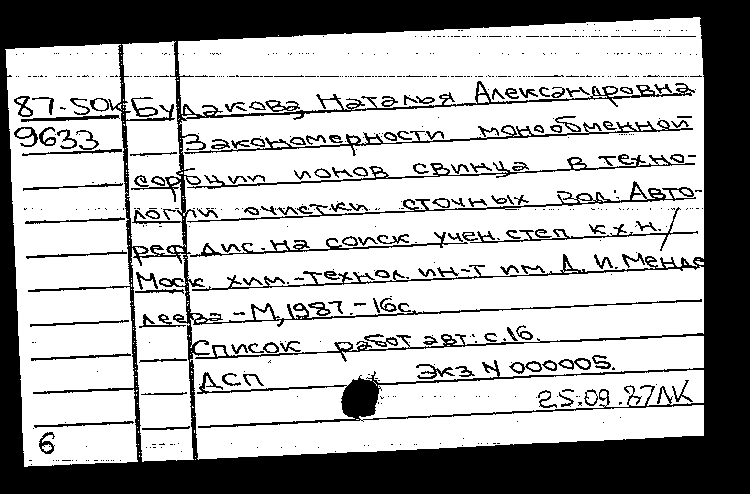 87-50к Будакова, Наталья Александровна
9633 Закономерности монообменной
сорбции ионов свинца в техно-
логии очистки сточных вод: Авто-
реф. дис. на соиск. учен. степ. к.х.н./
Моск. хим.-технол. ин-т им. Д. И. Менде
леева - М, 1987. - 16с.
Список работ авт: с. 16.
ДСП Экз N 000005.
25.09.87 ЛК
6